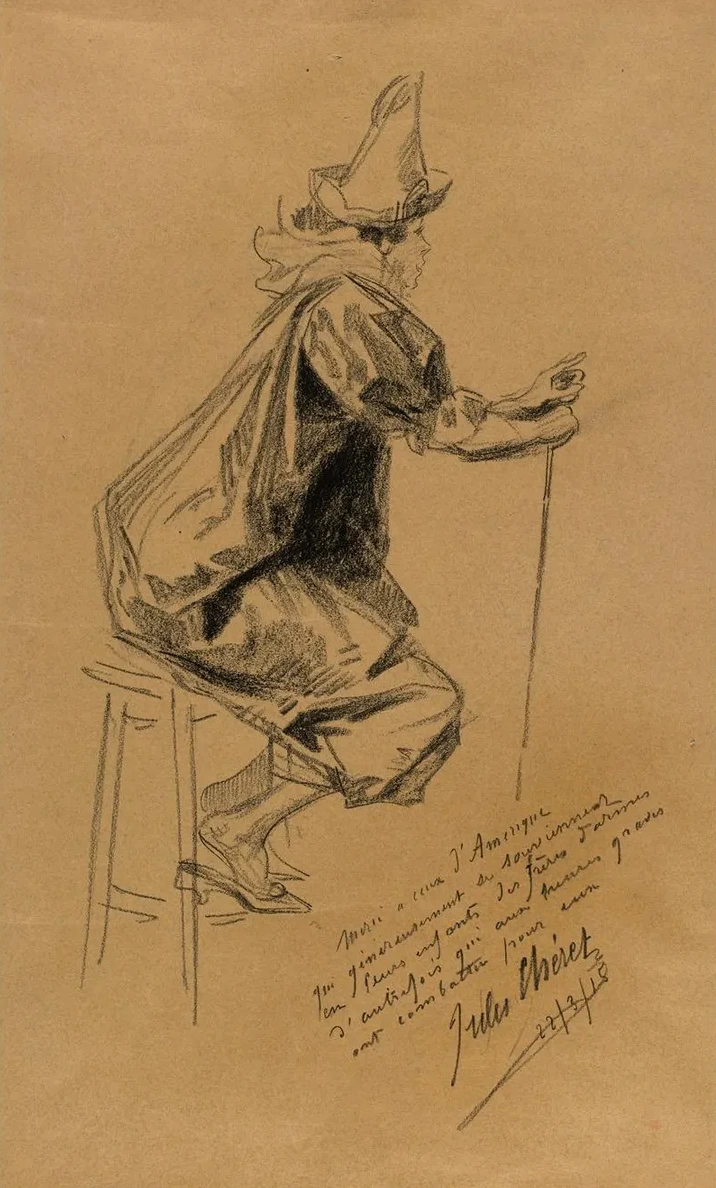 Merci a ceux d'Amerique
qui génereusement se souviennent
en leurs enfants des frères d'armes
d'autrefois qui aux heures graves
ont combattu pour eux
Jules Chéret
22/3/18